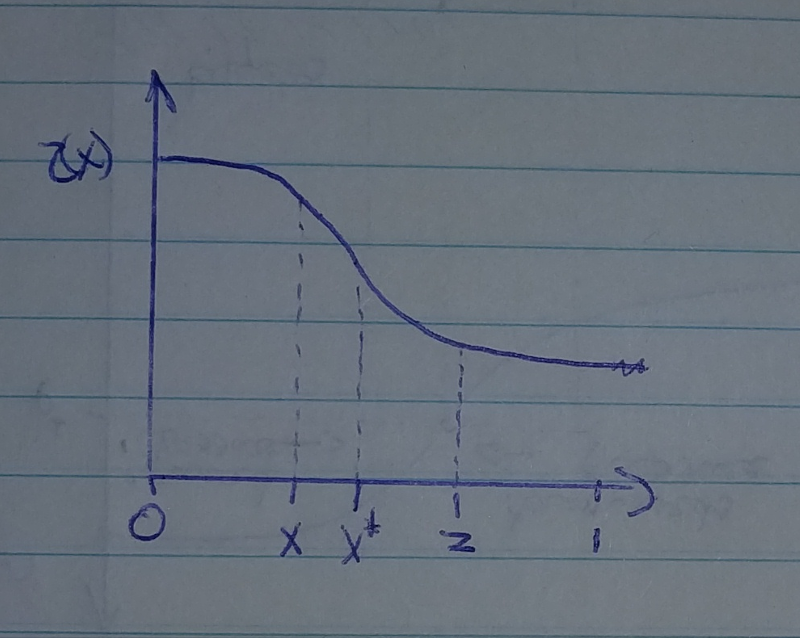 0 x x* z 1